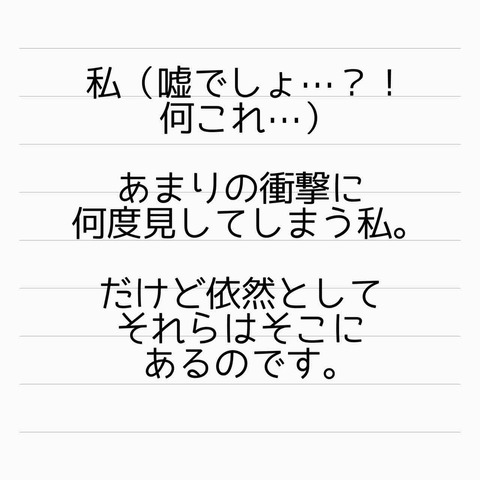 私（嘘でしょ…？！
何これ…）
あまりの衝撃に
何度見してしまう私。
だけど依然として
それらはそこに
あるのです。